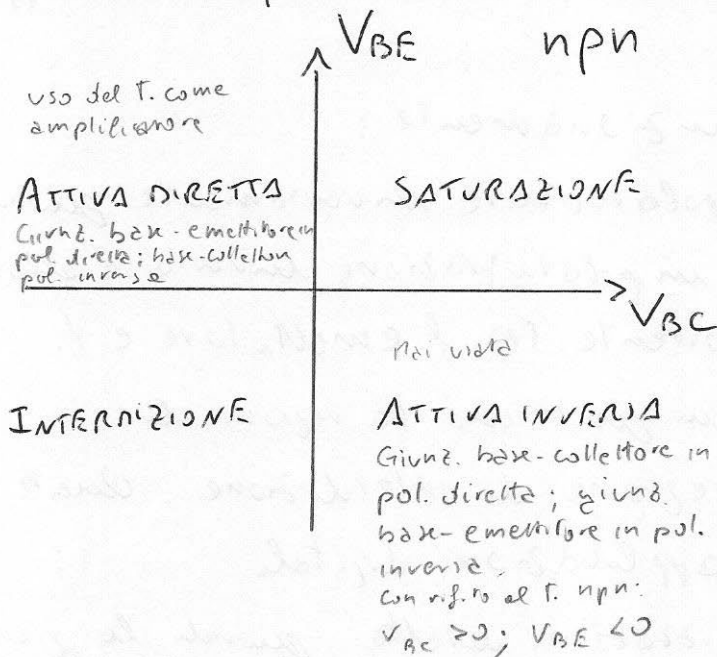 VBE npn
uso del T. come
amplificatore
ATTIVA DIRETTA
Giunz. base-emettitore in
pol. diretta; base-collettore
pol. inversa
SATURAZIONE
VBC
Mai usata
INTERDIZIONE
ATTIVA INVERSA
Giunz. base-collettore in
pol. diretta; giunz.
base-emettitore in pol.
inversa.
con rif.to al T. npn:
VBC >0; VBE <0